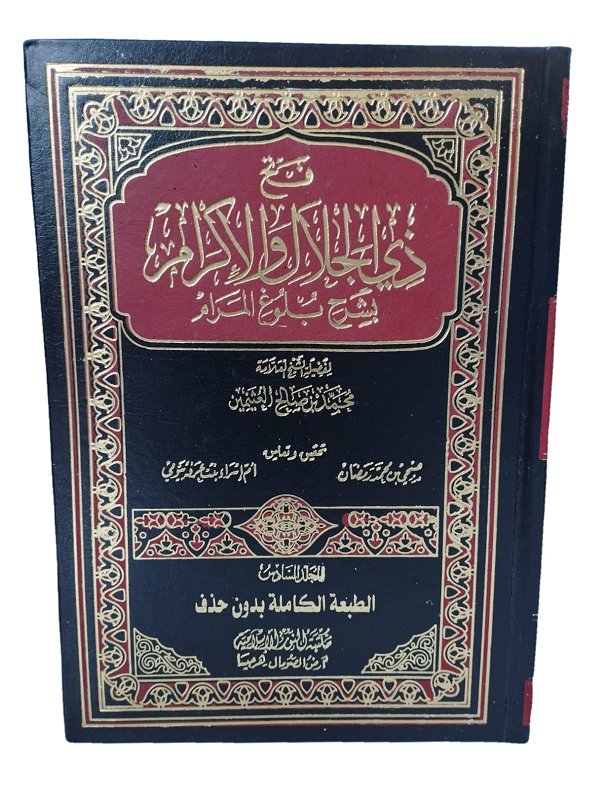 فتح
ذي الجلال والإكرام
بشرح بلوغ المرام
لفضيلة الشيخ العلامة
محمد بن صالح العثيمين
تحقيق وتعليق
صبحي بن محمد رمضان أم إسراء بنت عرفة بيومي
المجلد السادس
الطبعة الكاملة بدون حذف
مكتبة النور الإسلامية
أرض الصومال - هرجيسا